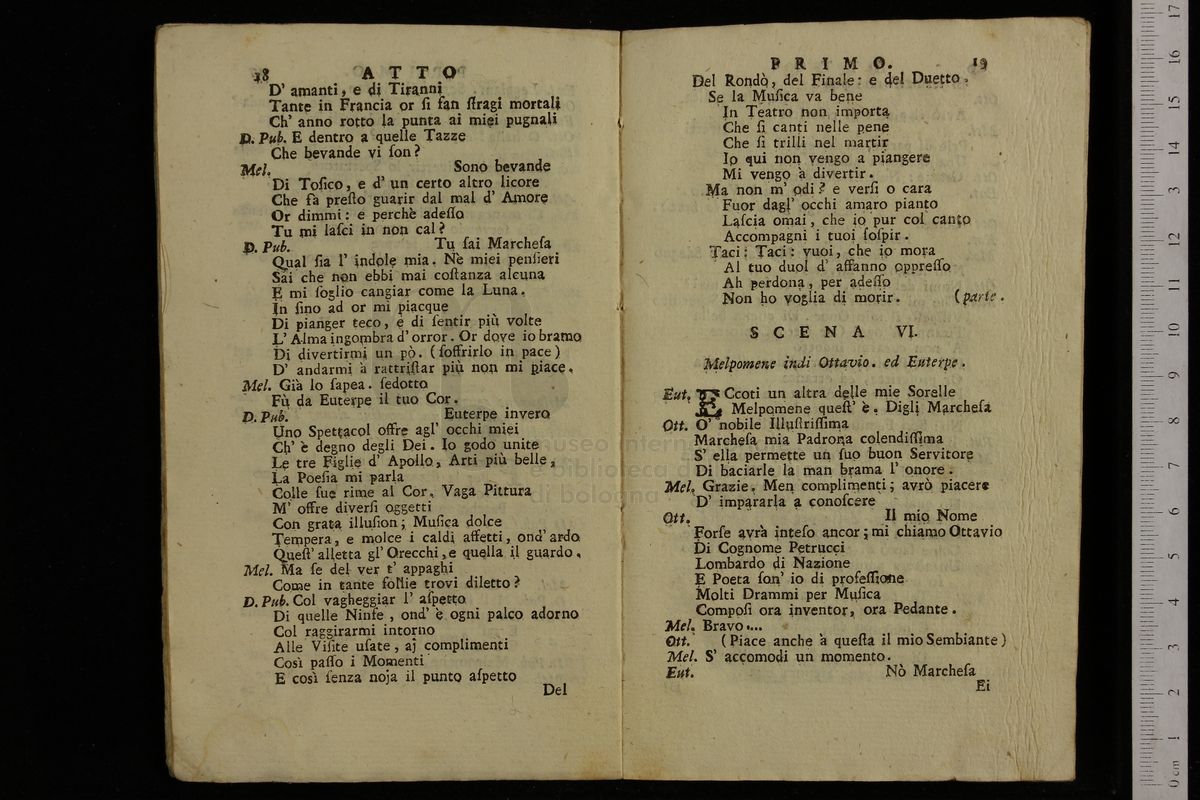 18 ATTO
D' amanti, e di Tiranni
Tante in Francia or ſi fan ſtragi mortali
Ch' anno rotto la punta ai miei pugnali
D. Pub. E dentro a quelle Tazze
Che bevande vi ſon?
Mel. Sono bevande
Di Toſico, e d' un certo altro licore
Che fà preſto guarir dal mal d' Amore
Or dimmi: e perchè adeſſo
Tu mi laſci in non cal?
D. Pub. Tu ſai Marcheſa
Qual ſia l' indole mia. Nè miei penſieri
Sai che non ebbi mai coſtanza alcuna
E mi ſoglio cangiar come la Luna.
In ſino ad or mi piacque
Di pianger teco, e di ſentir più volte
L' Alma ingombra d' orror. Or dove io bramo
Di divertirmi un pò. (ſoffrirlo in pace)
D' andarmi à rattriſtar più non mi piace.
Mel. Già lo ſapea. ſedotto
Fù da Euterpe il tuo Cor.
D. Pub. Euterpe invero
Uno Spettacol offre agl' occhi miei
Ch' è degno degli Dei. Io godo unite
Le tre Figlie d' Apollo, Arti più belle,
La Poeſia mi parla
Colle ſue rime al Cor, Vaga Pittura
M' offre diverſi oggetti
Con grata illuſion; Muſica dolce
Tempera, e molce i caldi affetti, ond' ardo
Queſt' alletta gl' Orecchi, e quella il guardo.
Mel. Ma ſe del ver t' appaghi
Come in tante follie trovi diletto?
D. Pub. Col vagheggiar l' aſpetto
Di quelle Ninfe, ond' è ogni palco adorno
Col raggirarmi intorno
Alle Viſite uſate, aj complimenti
Così paſſo i Momenti
E così ſenza noja il punto aſpetto
Del
PRIMO. 19
Del Rondò, del Finale: e del Duetto.
Se la Muſica va bene
In Teatro non importa
Che ſi canti nelle pene
Che ſi trilli nel martir
Io qui non vengo a piangere
Mi vengo à divertir.
Ma non m' odi? e verſi o cara
Fuor dagl' occhi amaro pianto
Laſcia omai, che io pur col canto
Accompagni i tuoi ſoſpir.
Taci: Taci: vuoi, che io mora
Al tuo duol d' affanno oppreſſo
Ah perdona, per adeſſo
Non ho voglia di morir. (parte.
SCENA VI.
Melpomene indi Ottavio. ed Euterpe.
Eut. ECcoti un altra delle mie Sorelle
Melpomene queſt' è. Digli Marcheſa
Ott. O' nobile Illuſtriſſima
Marcheſa mia Padrona colendiſſima
S' ella permette un ſuo buon Servitore
Di baciarle la man brama l' onore.
Mel. Grazie. Men complimenti; avrò piacere
D' impararla a conoſcere
Ott. Il mio Nome
Forſe avrà inteſo ancor; mi chiamo Ottavio
Di Cognome Petrucci
Lombardo di Nazione
E Poeta ſon' io di profeſſione
Molti Drammi per Muſica
Compoſi ora inventor, ora Pedante.
Mel. Bravo....
Ott. (Piace anche à queſta il mio Sembiante)
Mel. S' accomodi un momento.
Eut. Nò Marcheſa
Ei
museo internazionale
biblioteca della
di bologna